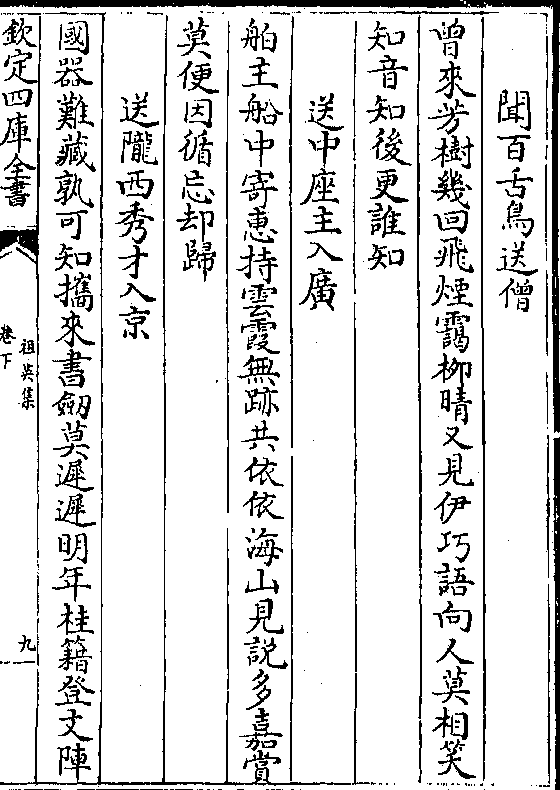 聞百舌鳥送僧
曾來芳樹幾回飛煙靄柳晴又見伊巧語向人莫相笑
知音知後更誰知
送中座主入廣
舶主船中寄惠持雲霞無跡共依依海山見説多嘉賞
莫便因循忘却歸
送隴西秀才入京
國器難藏孰可知攜來書劒莫遲遲明年桂籍登文陣
欽定四庫全書
祖英集
卷下
九